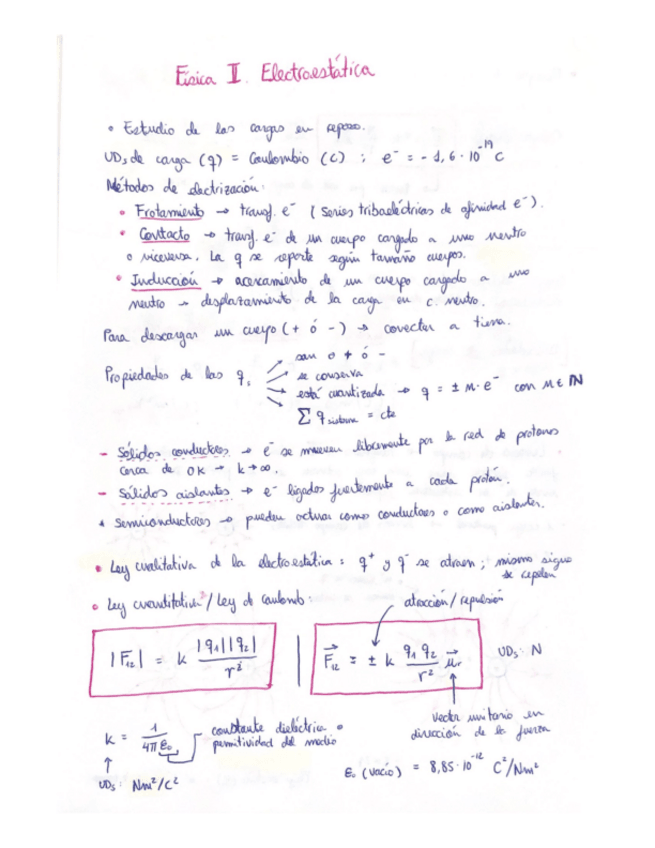 Física II. Electroestática
• Estudio de las cargas en reposo.
UDs de carga (q) = Coulombio (C) ; e⁻ = -1,6·10⁻¹⁹ C
Métodos de electrización:
• Frotamiento → transf. e⁻ (series triboeléctricas de afinidad e⁻).
• Contacto → transf. e⁻ de un cuerpo cargado a uno neutro
o viceversa. La q se reparte según tamaño cuerpos.
• Inducción → acercamiento de un cuerpo cargado a uno
neutro → desplazamiento de la carga en c. neutro.
Para descargar un cuerpo (+ ó -) → conectar a tierra.
Propiedades de las q.
→ san o + ó -
→ se conserva
→ está cuantizada → q = ± n·e⁻ con n ∈ ℕ
→ Σ q sistema = cte
- Sólidos conductores → e⁻ se mueven libremente por la red de protones
cerca de 0K → k→∞.
- Sólidos aislantes → e⁻ ligados fuertemente a cada protón.
* Semiconductores → pueden actuar como conductores o como aislantes.
• Ley cualitativa de la electroestática: q⁺ y q⁻ se atraen; mismo signo
se repelen
• Ley cuantitativa / Ley de Coulomb:
atracción / repulsión
|F₁₂| = k |q₁||q₂| / r² | F⃗₁₂ = ± k q₁ q₂ / r² u⃗ᵣ UDs: N
vector unitario en
dirección de la fuerza
k = 1 / 4πε₀ → constante dieléctrica o
permitividad del medio
↑
UDs: Nm²/C²
ε₀ (vacío) = 8,85·10⁻¹² C²/Nm²